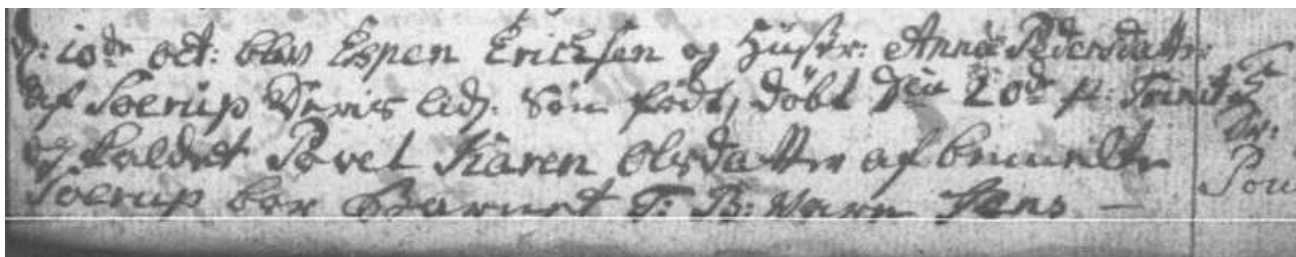 d: 10de oct: blev Espen Ericksen og Hustr: Anna Pedersdatter
af Soerup Deris lidj. Søn født, døbt Dn 20de p: Trinit:
og kaldet Povel Karen Olesdatter af bemeldte
Soerup bar Barnet T: B: vare Jens —
Pou